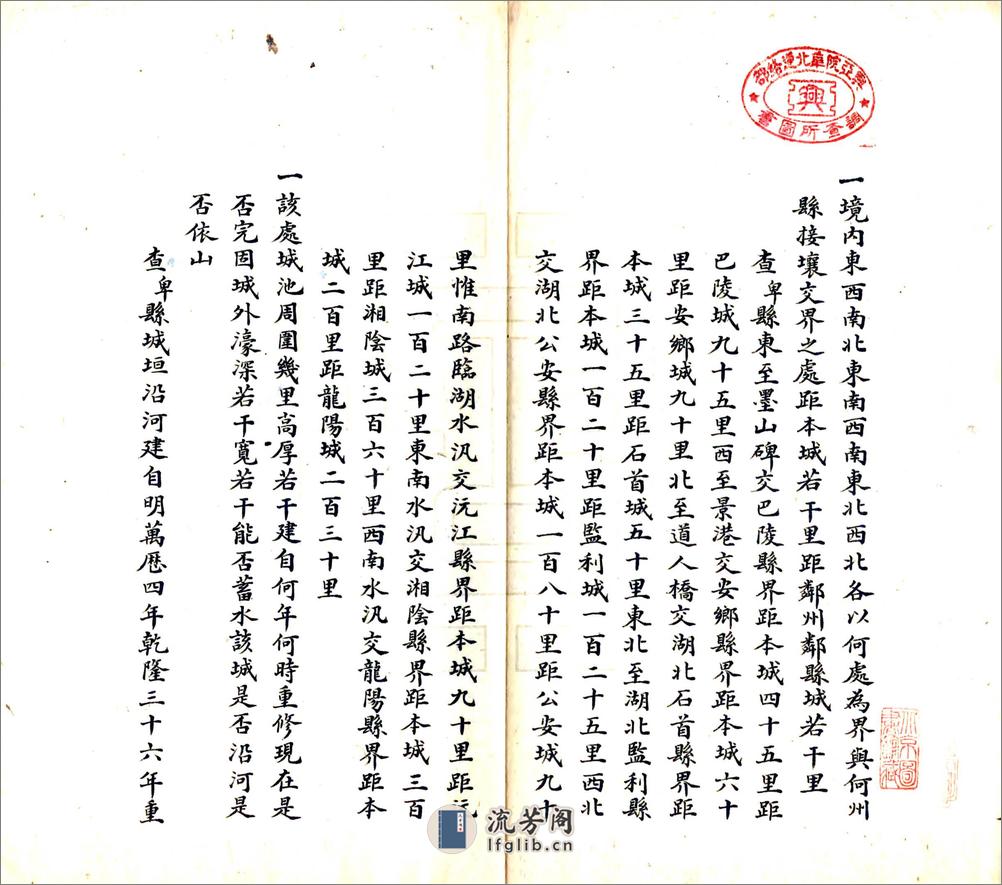 興亞院華北連絡部
興
調查所圖書
一境內東西南北東南西南東北西北各以何處為界與何州
縣接壤交界之處距本城若干里距鄰州鄰縣城若干里
查卑縣東至墨山碑交巴陵縣界距本城四十五里距
巴陵城九十五里西至景港交安鄉縣界距本城六十
里距安鄉城九十里北至道人橋交湖北石首縣界距
本城三十五里距石首城五十里東北至湖北監利縣
界距本城一百二十里距監利城一百二十五里西北
交湖北公安縣界距本城一百八十里距公安城九十
里惟南路臨湖水汛交沅江縣界距本城九十里距沅
江城一百二十里東南水汛交湘陰縣界距本城三百
里距湘陰城三百六十里西南水汛交龍陽縣界距本
城二百里距龍陽城二百三十里
一該處城池周圍幾里高厚若干建自何年何時重修現在是
否完固城外濠深若干寬若干能否蓄水該城是否沿河是
否依山
查卑縣城垣沿河建自明萬歷四年乾隆三十六年重
流芳阁
lfglib.cn